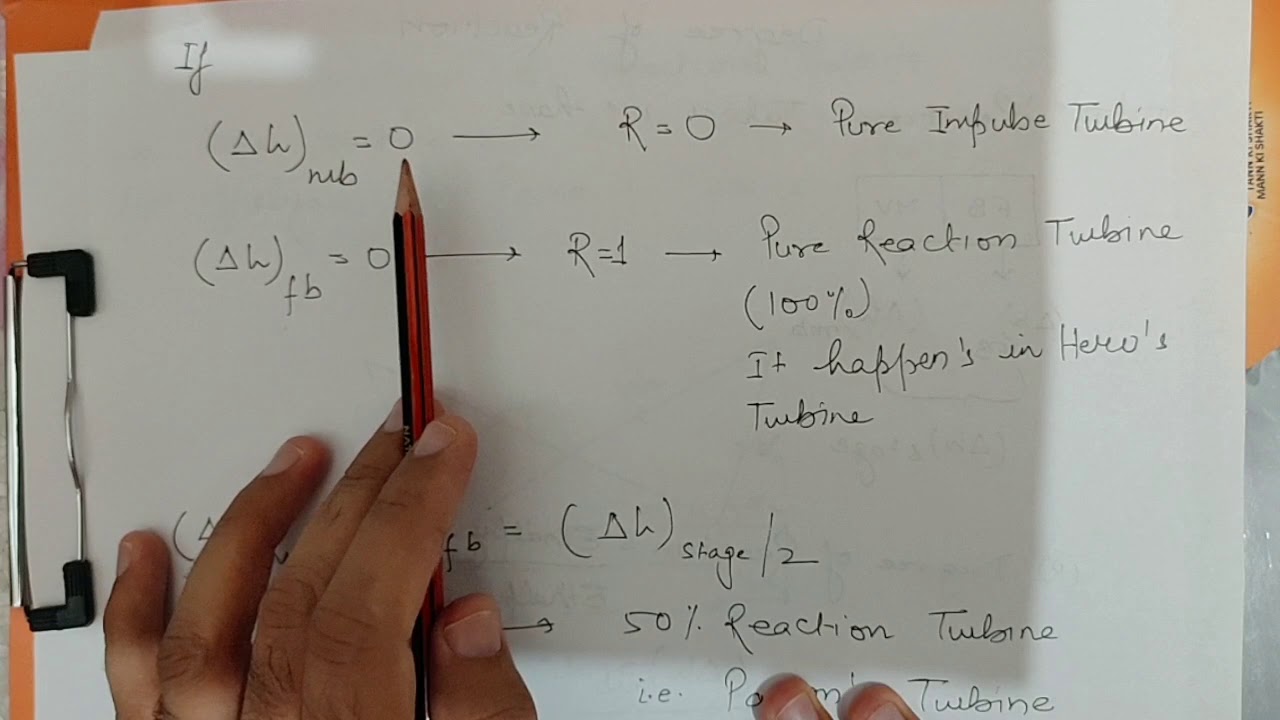 If
(Δh)mb = 0 → R = 0 → Pure Impulse Turbine
(Δh)fb = 0 → R=1 → Pure Reaction Turbine
(100%)
It happen's in Hero's
Turbine
fb = (Δh)stage/2
→ 50% Reaction Turbine
i.e. Turbine
MANN KI SHAKTI